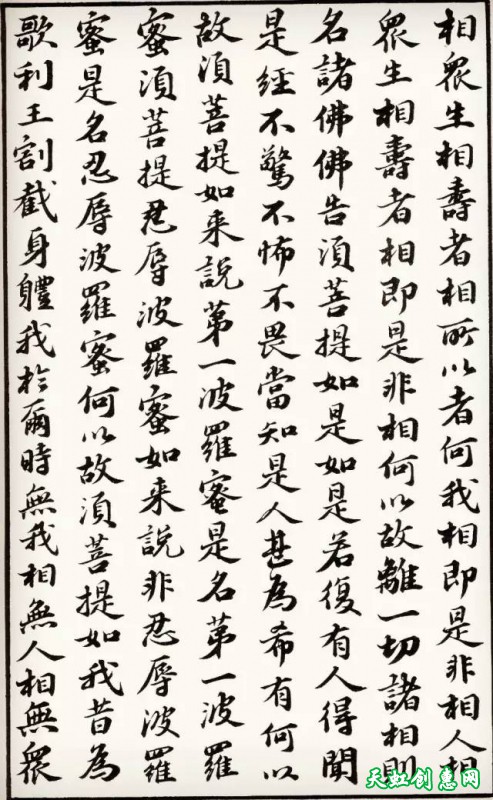 相眾生相壽者相所以者何我相即是非相人相
眾生相壽者相即是非相何以故離一切諸相則
名諸佛佛告須菩提如是如是若復有人得聞
是經不驚不怖不畏當知是人甚為希有何以
故須菩提如来說第一波羅蜜是名第一波羅
蜜須菩提忍辱波羅蜜如来說非忍辱波羅
蜜是名忍辱波羅蜜何以故須菩提如我昔為
歌利王割截身體我於爾時無我相無人相無眾
天虹创惠网